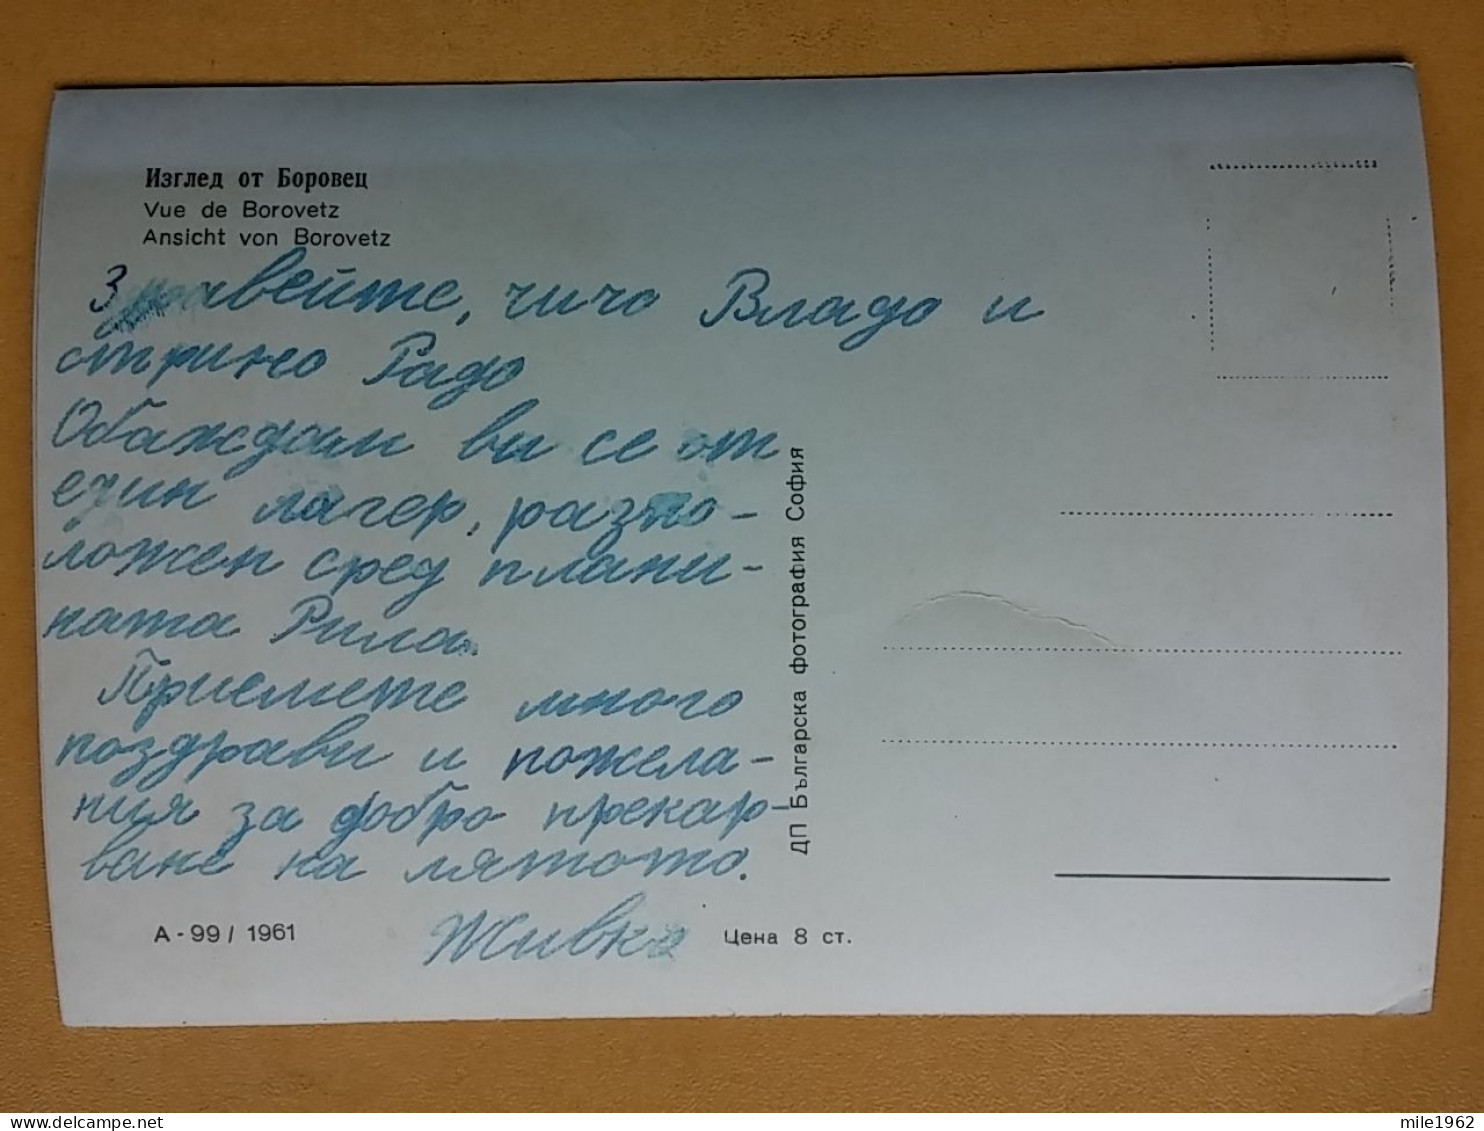 Изглед от Боровец
Vue de Borovetz
Ansicht von Borovetz
Здравейте, чичо Владо и
стрино Радо
Обаждам ви се от
един лагер, разпо-
ложен сред плани-
ната Рила.
Приемете много
поздрави и пожела-
ния за добро прекар-
ване на лятото.
Живко
А - 99 / 1961
Цена 8 ст.
ДП Българска фотография София
mile1962